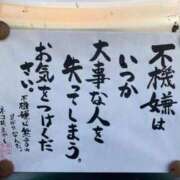 不機嫌は
いつか
大事な人を
失ってしまう。
お気をつけくだ
さい。